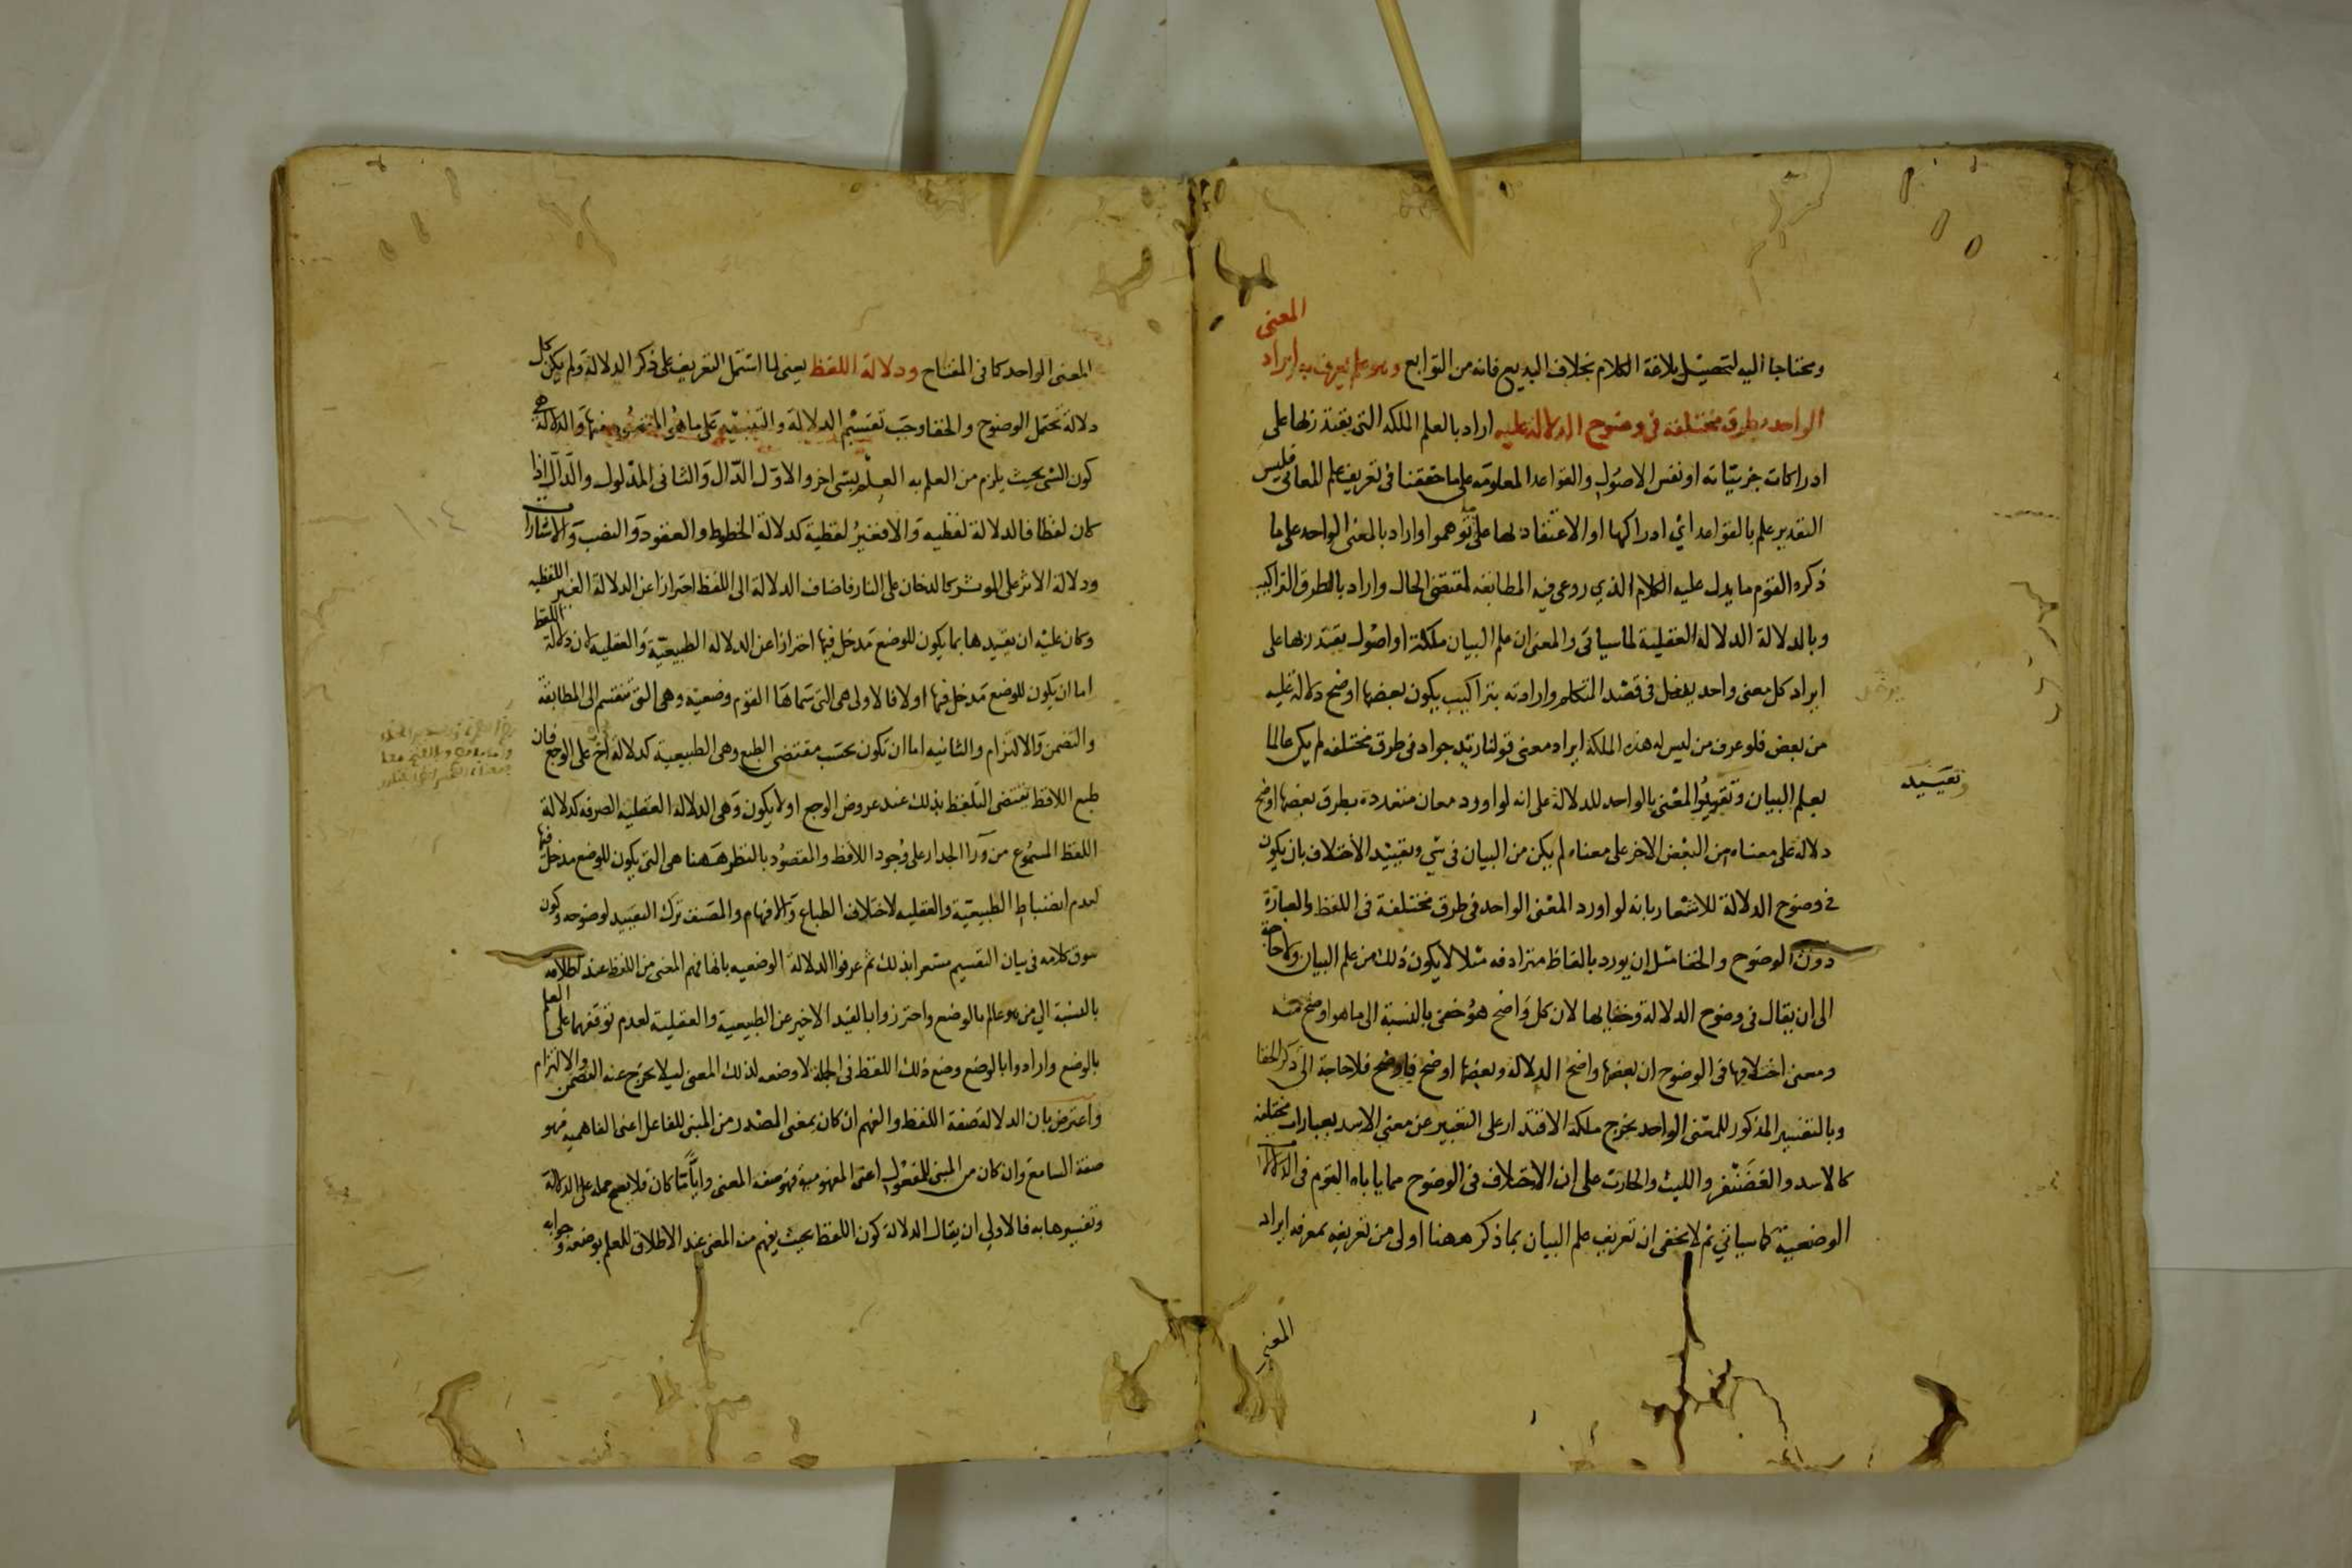 ومحتاجا اليه لتحصيل بلاغة الكلام بخلاف البديع فانه من التوابع وهو علم يعرف به ايراد المعنى
الواحد بطرق مختلفة فى وضوح الدلالة عليه اراد بالعلم الملكة التى يقتدر بها على
ادراكات جزيئاته او نفس الاصول والقواعد المعلومة على ما حققنا فى تعريف علم المعانى فليس
التقدير علم بالقواعد اي ادراكها او الاعتقاد لها على ما توهموا واراد بالمعنى الواحد على ما
ذكره القوم ما يدل عليه الكلام الذي روعى فيه المطابقه لمقتضى الحال واراد بالطرق التراكيب
وبالدلالة الدلالة العقلية لما سياتى والمعنى ان علم البيان ملكة او اصول يقتدر بها على
ايراد كل معنى واحد يدخل فى قصد المتكلم وارادته بتراكيب يكون بعضها اوضح دلالة عليه
من بعض فلو عرف من ليس له هذه الملكة ايراد معنى قولنا زيد جواد فى طرق مختلفه لم يكن عالما
بعلم البيان وتقييد المعنى بالواحد للدلالة على انه لو اورد معان متعددة بطرق بعضها اوضح
وتقييد
دلالة على معناه من البعض الاخر على معناه لم يكن من البيان فى شي وتقييد الاختلاف بان يكون
فى وضوح الدلالة للاشعار بانه لو اورد المعنى الواحد فى طرق مختلفة فى اللفظ والعبارة
دون الوضوح والخفا مثل ان يورد بالفاظ مترادفه مثلا لا يكون ذلك من علم البيان ولا حاجة
الى ان يقال فى وضوح الدلالة وخفايها لان كل واضح هو خفى بالنسبة الى ما هو اوضح منه
ومعنى اختلافها فى الوضوح ان بعضها واضح الدلالة وبعضها اوضح فلا حاجة الى ذكر الخفا
وبالتفسير المذكور للمعنى الواحد يخرج ملكة الاقتدار على التعبير عن معنى الاسد بعبارات مختلفه
كالاسد والغضنفر والليث والحارث على ان الاختلاف فى الوضوح مما ياباه القوم فى الدلالات
الوضعية كما سياتي ثم لا يخفى ان تعريف علم البيان بما ذكر ههنا اولى من تعريفه بمعرفه ايراد
المعنى
المعنى الواحد كما فى المفتاح ودلالة اللفظ يعنى لما اشتمل التعريف على ذكر الدلالة ولم يكن كل
دلالة تحتمل الوضوح والخفا وجب تقسيم الدلالة والتنبيه على ما هو المقصود منها والدلالة هى
كون الشى بحيث يلزم من العلم به العلم بشى اخر والاول الدال والثانى المدلول والدال اذا
كان لفظا فالدلالة لفظيه والا فغير لفظية كدلالة الخطوط والعقود والنصب والاشارات
ودلالة الاثر على الموثر كالدخان على النار فاضاف الدلالة الى اللفظ احترازا عن الدلالة الغير اللفظيه
وكان عليه ان يقيدها بما يكون للوضع مدخل فيها احترازا عن الدلالة الطبيعية والعقليه لان دلالة اللفظ
اما ان يكون للوضع مدخل فيها اولا فالاولى هى التى سماها القوم وضعية وهى التى تنقسم الى المطابقة
والتضمن والالتزام والثانيه اما ان تكون بحسب مقتضى الطبع وهى الطبيعية كدلالة اخ على الوجع فان
طبع اللافظ يقتضى التلفظ بذلك عند عروض الوجع اولا يكون وهى الدلالة العقليه الصرفه كدلالة
اللفظ المسموع من ورآ الجدار على وجود اللافظ والمقصود بالنظر ههنا هى التى يكون للوضع مدخل فيها
لعدم انضباط الطبيعية والعقليه لاختلاف الطباع والافهام والمصنف ترك التقييد لوضوحه وكون
سوق كلامه فى بيان التقسيم مشعرا بذلك ثم عرفوا الدلالة الوضعيه بانها فهم المعنى من اللفظ عند اطلاقه
بالنسبة الى من هو عالم بالوضع واحترزوا بالقيد الاخير عن الطبيعية والعقلية لعدم توقفهما على العلم
بالوضع وارادوا بالوضع وضع ذلك اللفظ فى الجملة لا وضعه لذلك المعنى ليلا يخرج عنه التضمن والالتزام
واعترض بان الدلالة صفة اللفظ والفهم ان كان بمعنى المصدر من المبنى للفاعل اعنى الفاهمية فهو
صفة السامع وان كان من المبنى للمفعول اعنى المفهومية فهو صفه المعنى وايا ما كان فلا يصح حمله على الدلالة
وتفسيرها به فالاولى ان يقال الدلالة كون اللفظ بحيث يفهم منه المعنى عند الاطلاق للعلم بوضعه وجوابه